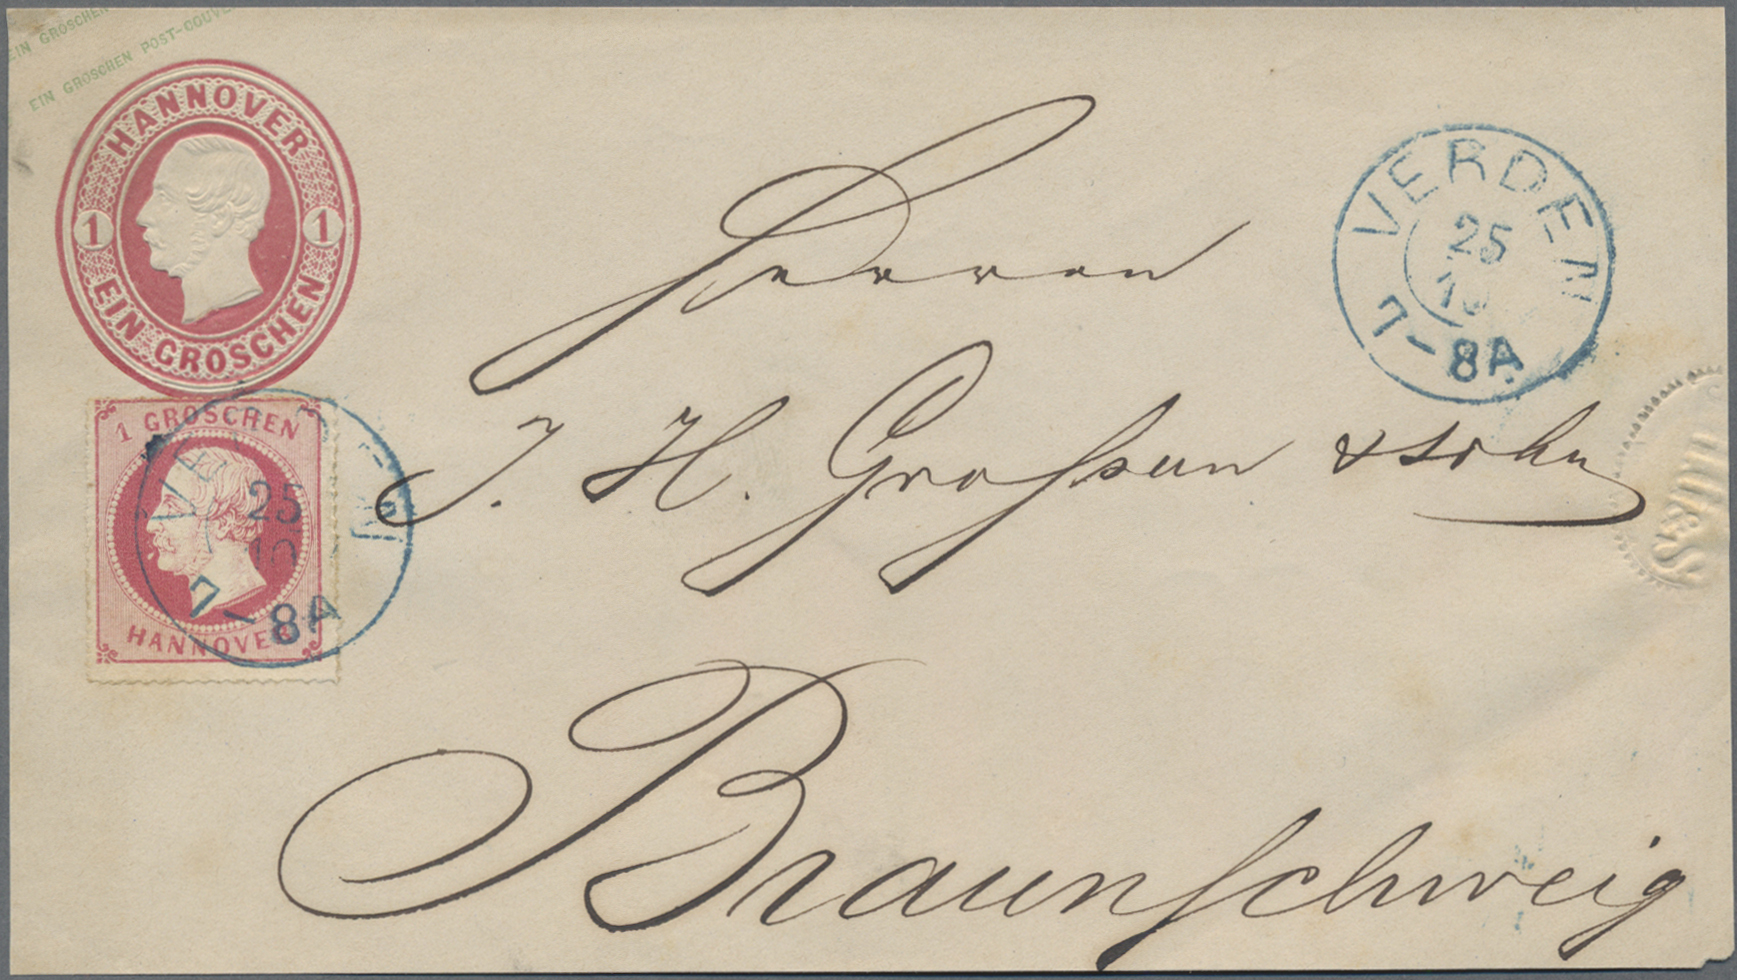 EIN GROSCHEN
EIN GROSCHEN POST-COUVE
HANNOVER
1 1
EIN GROSCHEN
1 GROSCHEN
HANNOVER
25
10
7-8A
VERDEN
25
10
7-8A
Herren
J. H. Großen & Sohn
Braunschweig